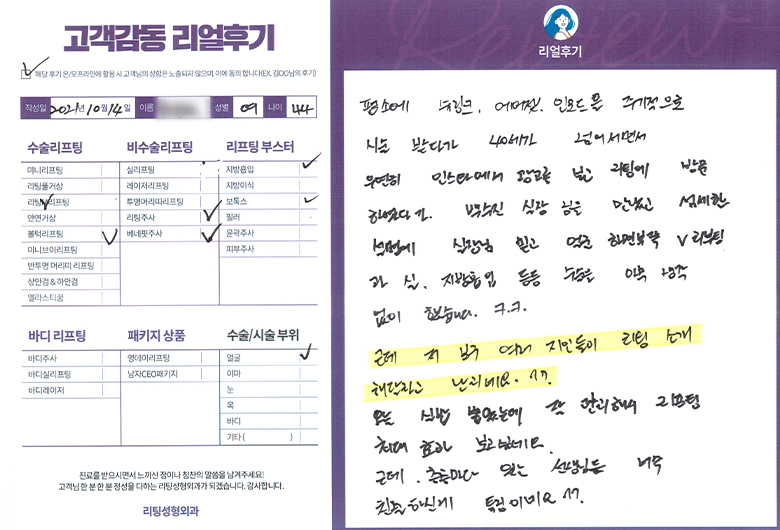 고객감동 리얼후기
해당 후기 온/오프라인에 활용 시 고객님의 성함은 노출되지 않으며, 이에 동의 합니다(EX. 김OO님의 후기)
작성일 2021년 10월 14일 이름 성별 여 나이 44
수술리프팅
미니리프팅
리팅풀거상
리팅
안면거상
볼턱리프팅
미니브이리프팅
반투명 머리띠 리프팅
상안검&하안검
엘라스티꿈
비수술리프팅
실리프팅
레이저리프팅
투명머리띠리프팅
리팅주사
베네핏주사
리프팅 부스터
지방흡입
지방이식
보톡스
필러
윤곽주사
피부주사
바디 리프팅
바디주사
바디실리프팅
바디레이저
패키지 상품
앵데이리프팅
남자CEO패키지
수술/시술 부위
얼굴
이마
눈
목
바디
기타 ( )
진료를 받으시면서 느끼신 점이나 칭찬의 말씀을 남겨주세요!
고객님 한 분 한 분 정성을 다하는 리팅성형외과가 되겠습니다. 감사합니다.
리팅성형외과
Review
리얼후기
평소에 슈링크, 에어젯, 인모드를 주기적으로
시술 받다가 40세가 넘어서면서
우연히 인스타에서 광고를 보고 리팅에 방문
하였다가. 실장님을 만났고 섬세한
설명에 실장님 믿고 얼굴 V리프팅
과 실, 지방흡입 등등 수술을 아무 생각
없이 했습니다. ㅋ.ㅋ.
근데 저 보구 여러 지인들이 리팅 소개
해달라고 난리네요. ^^.
오늘 실밥 뽑았는데 잘 관리해서 리프팅
최대 효과 보고싶네요.
근데, 층층마다 있는 선생님들 너무
친절하신게 특징이네요 ^^.